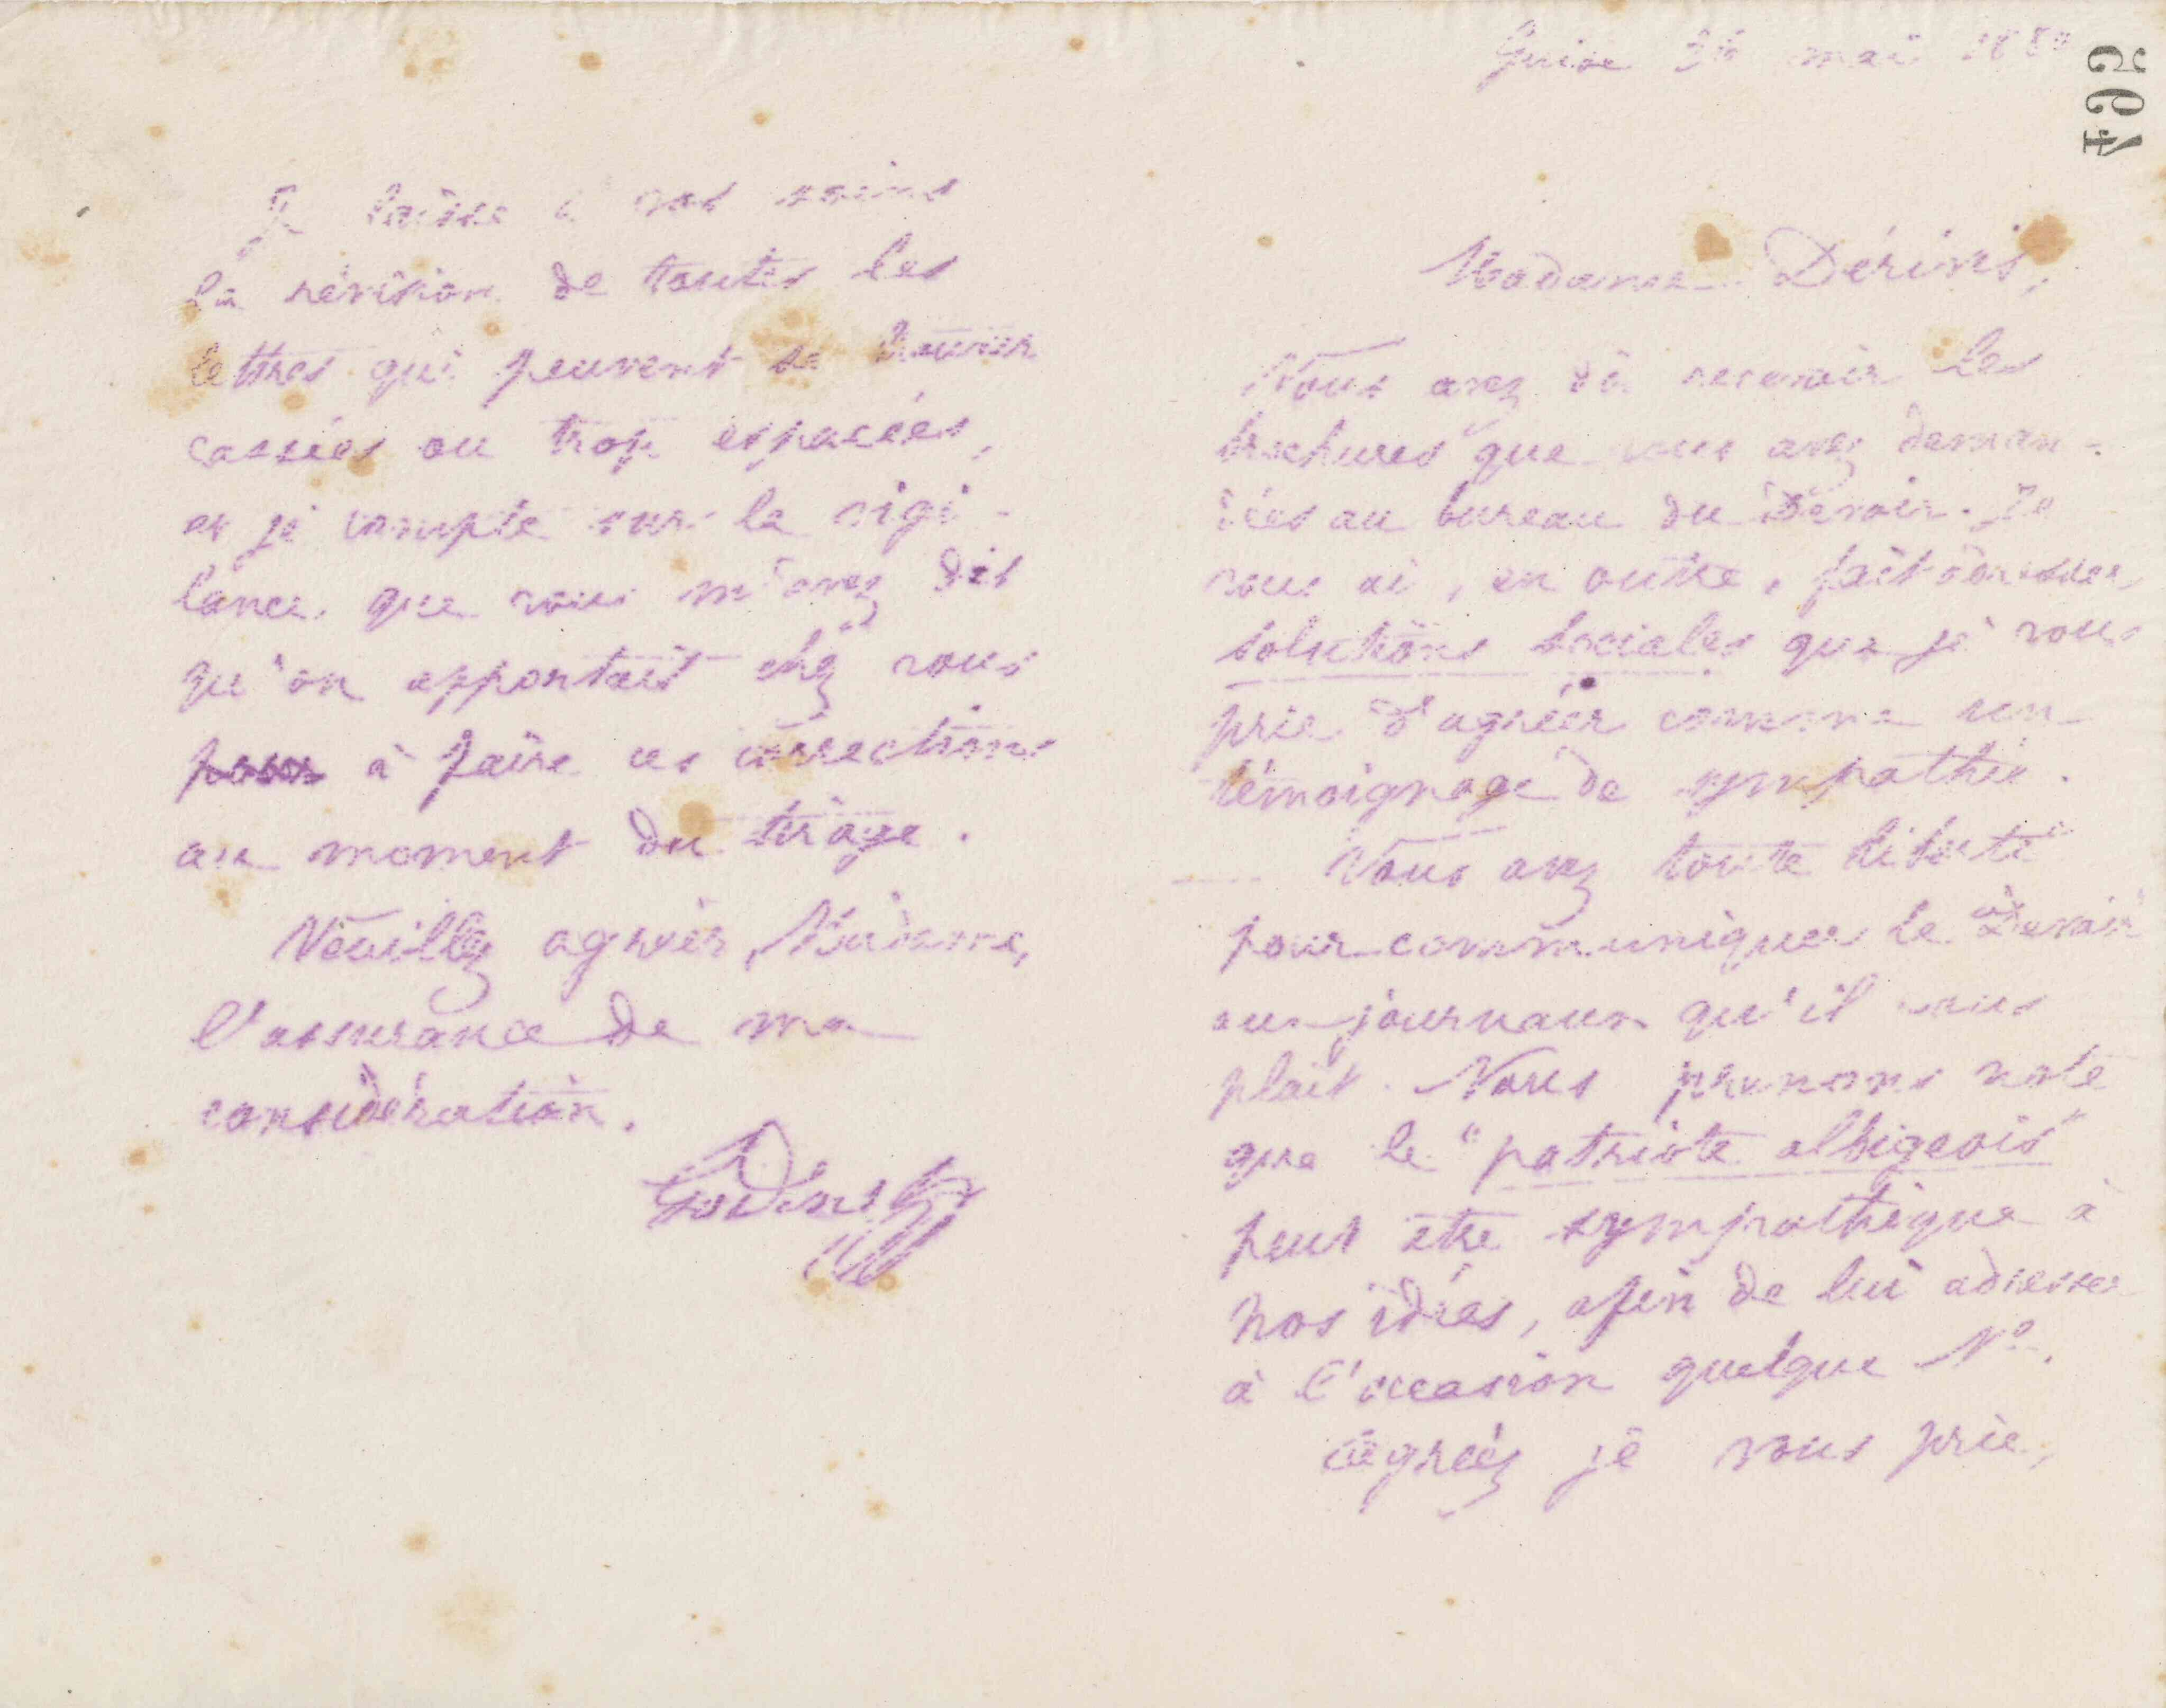 Je laisse à vos soins
la révision de toutes les
lettres qui peuvent se trouver
cassées ou trop espacées,
et je compte sur la vigi-
lance que vous m'avez dit
qu'on apportait chez vous
pour à faire ces corrections
au moment du tirage.
Veuillez agréer, Madame,
l'assurance de ma
considération.
Godin
564
Guise mai
Madame Dérivis,
Vous avez dû recevoir les
brochures que vous avez deman-
dées au bureau du Devoir. Je
vous ai, en outre, fait adresser
solutions sociales que je vous
prie d'agréer comme un
témoignage de sympathie.
Vous avez toute liberté
pour communiquer le Devoir
aux journaux qu'il vous
plait. Nous prenons note
que le "patriote albigeois"
peut être sympathique à
nos idées, afin de lui adresser
à l'occasion quelque No.
Agréez je vous prie,